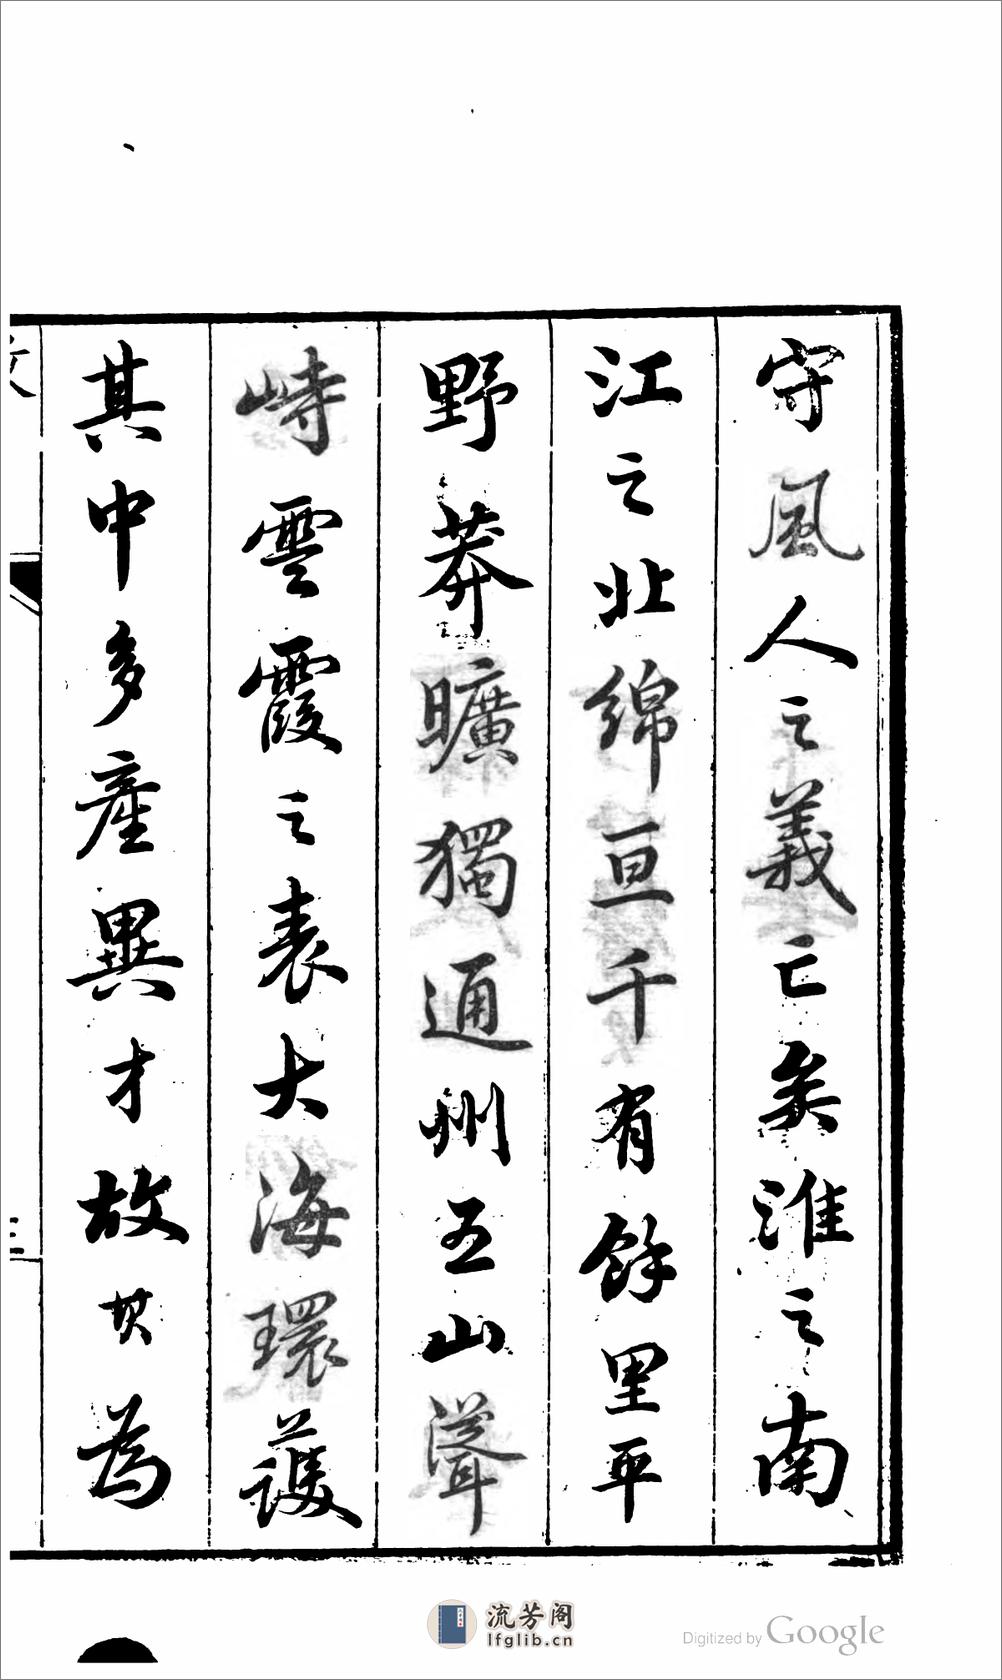 守風人之義亡矣淮之南
江之北綿亘千有餘里平
野莽曠獨通州五山聳
峙雲霞之表大海環護
其中多產異才故其為
流芳阁
lfglib.cn
Digitized by Google